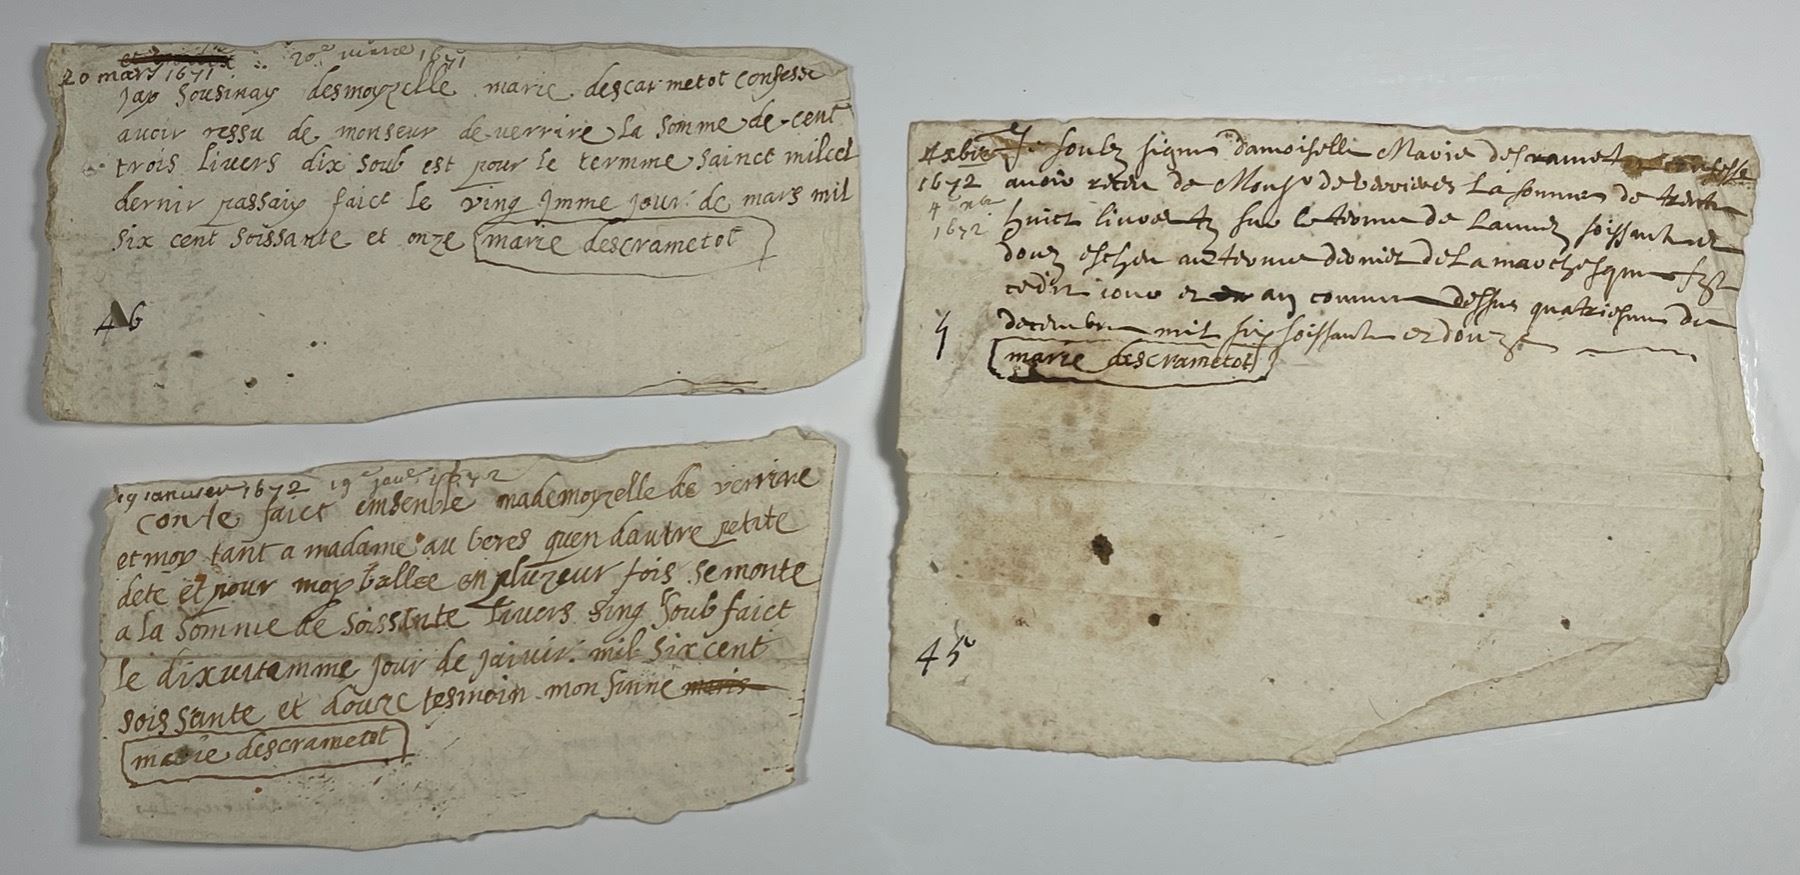 20e mars 1671
20 mars 1671
Jay sousinay desmoyzelle marie descarmetot confesse
avoir ressu de monseur de verrire la somme de cent
trois livers dix soub est pour le termme sainct milcel
dernir passaiy faict le ving jmme jour de mars mil
six cent soissante et onze marie descrametot
46
19 ianuier 1672 19e janr 1672
conte faict emsenble mademoyzelle de verrire
et moy tant a madame au beres quen dautre petite
dete et pour moy ballee en pluzeur fois se monte
a la somme de soissante livers sinq soub faict
le dixuitemme jour de jaivir mil six cent
soissante et douze tesmoin mon sinne
marie descrametot
4 xbre Je soubz signe damoiselle Marie descramet confesse
1672 avoir receu de Monsr de verrieres La somme de trente
4 xbre
1672
huict livres tz sur le terme de Lannez soissante et
douze escheu au terme dernier de La marchesque fst
cedit jour et an comme dessus quatriesme de
decembre mil six soissante et douze
marie descrametot
45